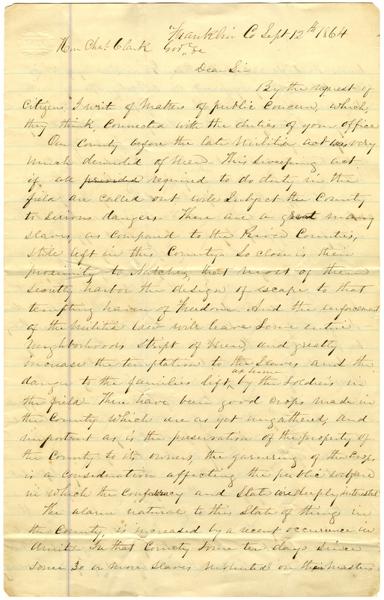 Franklin Co Sept 12th 1864
Hon Chas. Clark Govr &c
Dear Sir
By the request of
Citizens I writ of Matters of public Concern, which
they think, Connected with the duties of your office
Our County before the late Militia act was very
much denuded of Men. This Sweeping act
if all required to do duty in the
field are Called out will Subject the County
to Serious danger. There are a great many
slaves, as Compared to the River Counties,
still left in this County. So close is their
proximity to Natchez that most of them
secretly harbor the design of escape to that
tempting haven of freedom. And the enforcement
of the Militia law will leave Some entire
neighborhoods stript of Men and greatly
increase the temptation to the Slaves and the
danger to the families left at home by the Soldiers in
the field. There have been good Crops made in
the County which are as yet ungathered, and
important as is the preservation of the property of
the County to its owners, the garnering of the Crops
is a Consideration affecting the public welfare
in which the Confederacy and State are deeply interested
The alarm natural to this State of thing in
the County, is increased by a recent occurrence in
Amite. In that County Some ten days Since
Some 30 or more Slaves mounted on their masters